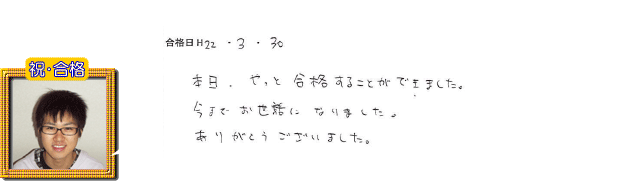 合格日H22・3・30
祝・合格
本日、やっと合格することができました。
今までお世話になりました。
ありがとうございました。